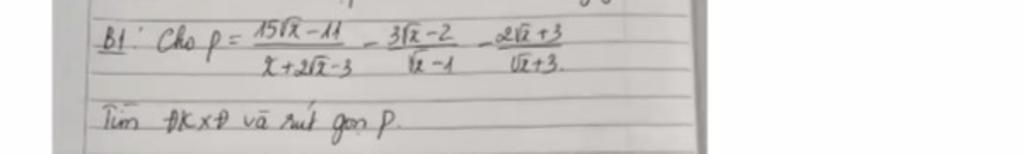 B1: Cho P = (15√x - 11)/(x + 2√x - 3) - (3√x - 2)/(√x - 1) - (2√x + 3)/(√x + 3).
Tìm ĐKXĐ và rút gọn P.